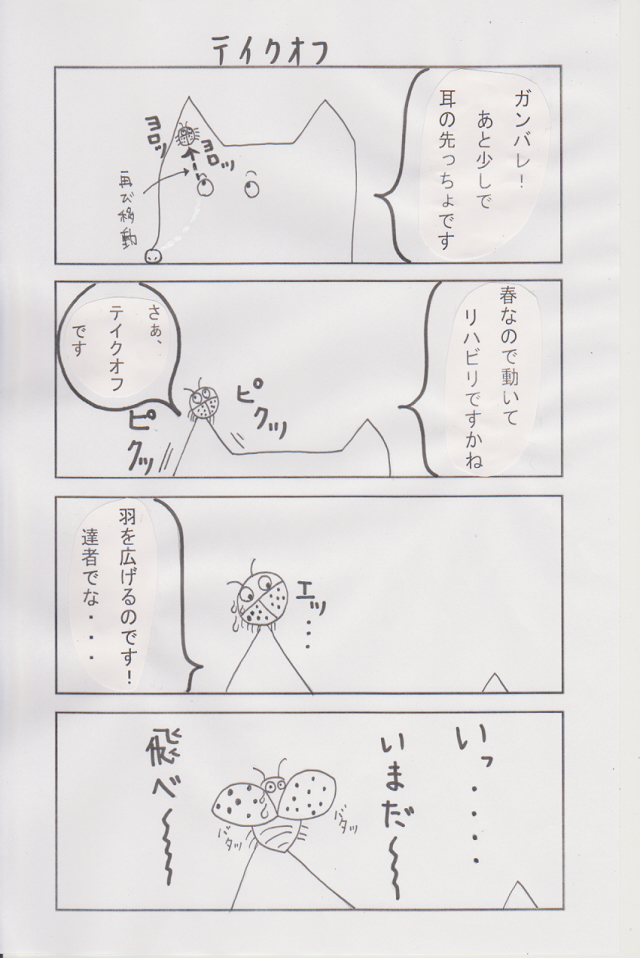 テイクオフ
ガンバレ！
あと少しで
耳の先っちょです
ヨロッ
ヨロッ
再び移動
春なので動いて
リハビリですかね
ピクッ
さぁ、
テイクオフ
です
ピクッ
エッ・・・
羽を広げるのです！
達者でな・・・
いっ・・・・
いまだ〜〜
バタッ
バタッ
飛べ〜〜